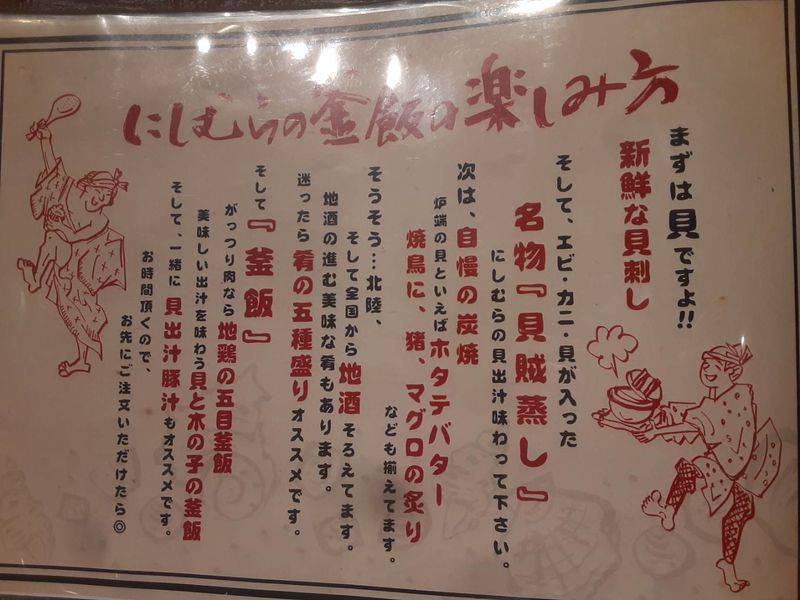 にしむらの釜飯の楽しみ方
まずは貝ですよ!!
新鮮な貝刺し
そして、エビ・カニ・貝が入った
名物『貝賊蒸し』
にしむらの貝出汁味わって下さい。
次は、自慢の炭焼
炉端の貝といえばホタテバター
焼鳥に、猪、マグロの炙り
なども揃えてます。
そうそう…北陸、
そして全国から地酒そろえてます。
地酒の進む美味な肴もあります。
迷ったら肴の五種盛りオススメです。
そして『釜飯』
がっつり肉なら地鶏の五目釜飯
美味しい出汁を味わう貝と木の子の釜飯
そして、一緒に貝出汁豚汁もオススメです。
お時間頂くので、
お先にご注文いただけたら◎